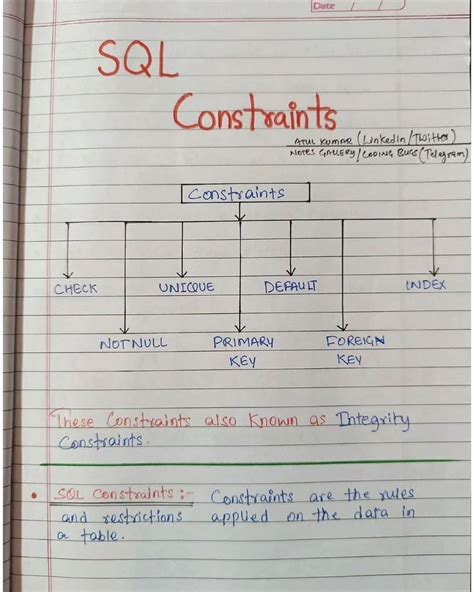 Date / /
SQL
Constraints
ATUL KUMAR (LinkedIn/Twitter)
NOTES GALLERY/CODING BUGS (Telegram)
Constraints
CHECK UNIQUE DEFAULT INDEX
NOTNULL PRIMARY FOREIGN
KEY KEY
These Constraints also Known as Integrity
Constraints.
• SQL Constraints :- Constraints are the rules
and restrictions applied on the data in
a table.